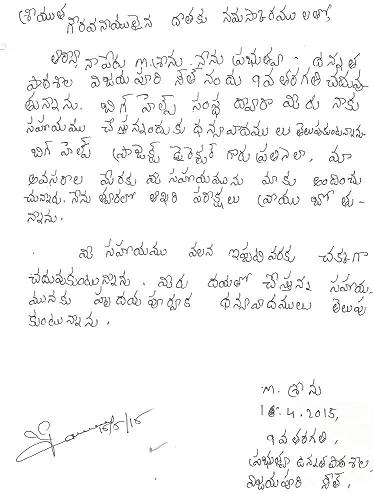 శ్రీయుత
గౌరవనీయులైన దాతకు నమస్కారములతో,
నా పేరు M. శ్రీను. నేను ప్రభుత్వ ఉన్నత
పాఠశాల విజయపూరి సౌత్ నందు 9వ తరగతి చదువు
తున్నాను. బిగ్ హెల్ప్ సంస్థ ద్వారా మీరు నాకు
సహాయము చేస్తున్నందుకు ధన్యవాదము లు తెలుపుకుంటున్నాను.
బిగ్ హెల్ప్ ప్రాజెక్ట్ డైరెక్టర్ గారు ప్రతినెలా, మా
అవసరాల మేరకు మీ సహాయమును మాకు అందించు
చున్నారు. నేను త్వరలో ఆఖరి పరీక్షలు వ్రాయ బోతు
న్నాను.
మీ సహాయము వలన ఇప్పటి వరకు చక్కగా
చదువుకుంటున్నాను. మీరు దయతో చేస్తున్న సహాయ
మునకు హృదయ పూర్వక ధన్యవాదములు తెలుపు
కుంటున్నాను.
M. శ్రీను
16.4.2015,
9వ తరగతి,
ప్రభుత్వ ఉన్నత పాఠశాల,
విజయపూరి సౌత్.
15/5/15